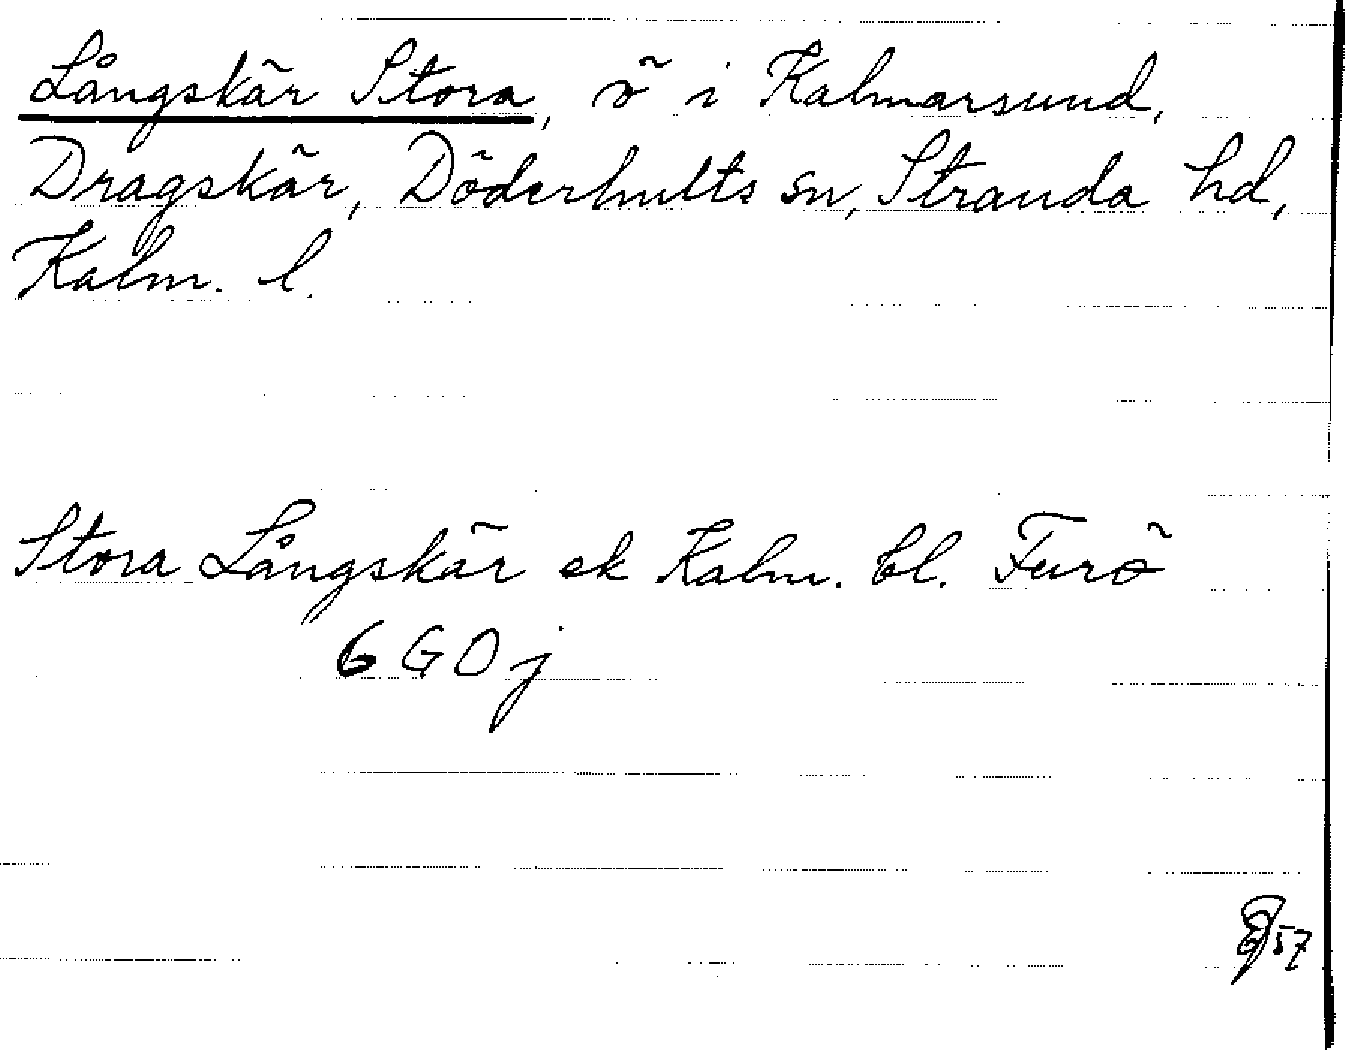 Långskär Stora, ö i Kalmarsund,
Dragskär, Döderhults sn, Stranda hd,
Kalm. l.
Stora Långskär ek Kalm. bl. Furö
6 G 0 j
57